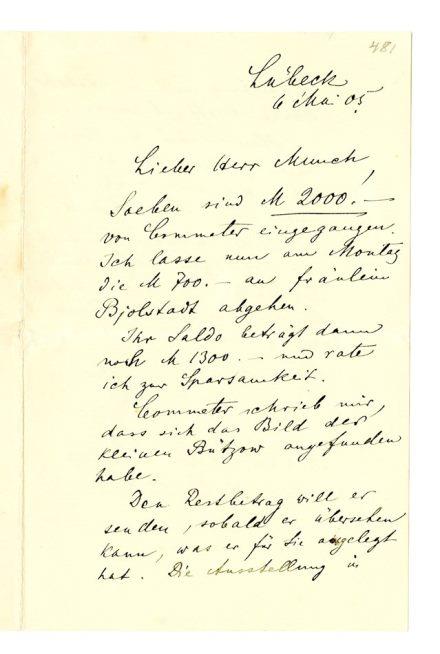 481
Lübeck
6 Mai 05.
Lieber Herr Munch,
Soeben sind M 2000.—
von Commeter eingegangen.
Ich lasse nun am Montag
die M 700.— an fräulein
Bjolstadt abgehen.
Ihr Saldo beträgt dann
noch M 1300.— und rate
ich zur Sparsamkeit.
Commeter schrieb mir,
dass sich das Bild der
kleinen Bützow angefunden
habe.
Den Restbetrag will er
senden, sobald er übersehen
kann, was er für Sie angelegt
hat. Die Ausstellung in